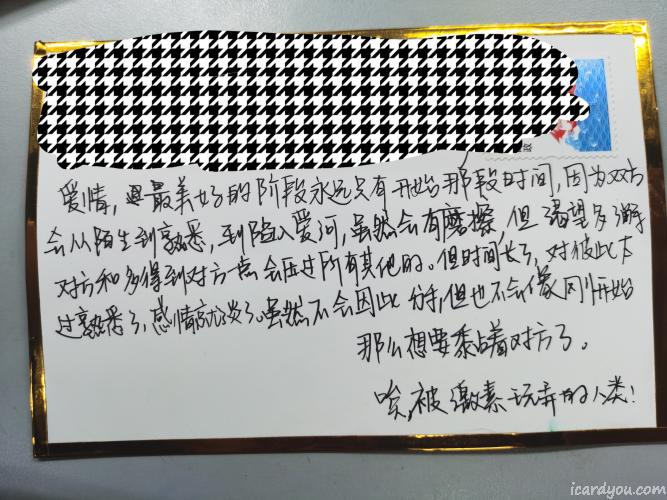 爱情,最美好的阶段永远只有开始那段时间,因为双方
会从陌生到熟悉,到陷入爱河,虽然会有磨擦,但渴望多了解
对方和多得到对方一点会压过所有其他的。但时间长了,对彼此太
过熟悉了,感情就淡了。虽然不会因此分手,但也不会像刚开始
那么想要黏着对方了。
唉,被激素玩弄的人类!
icardyou.com